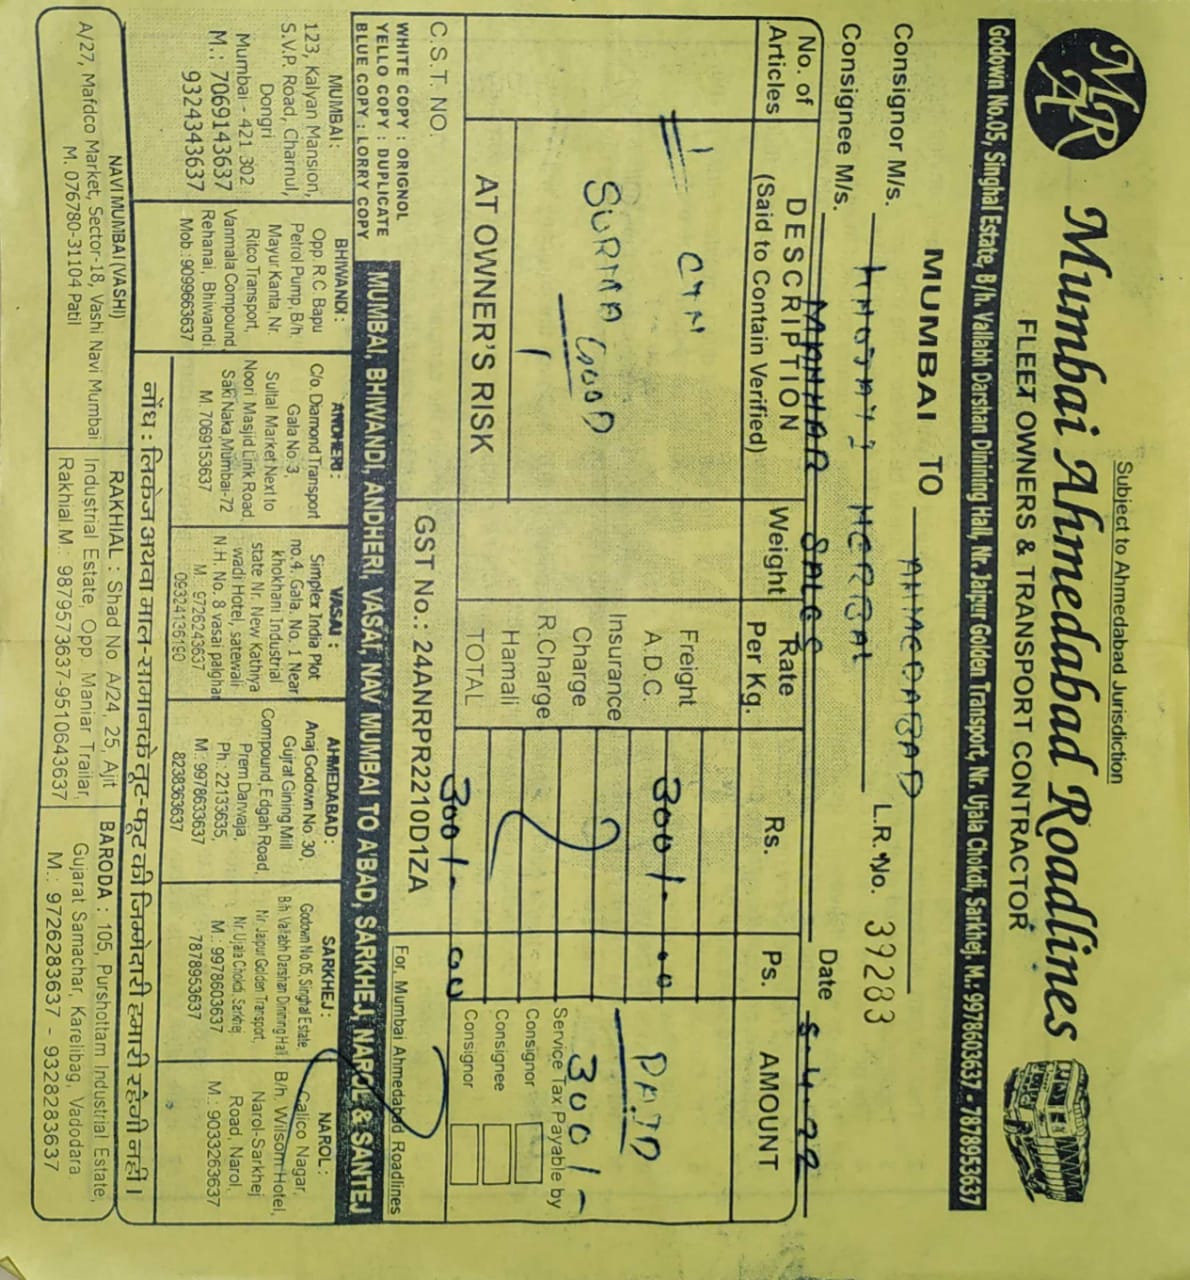 Subject to Ahmedabad Jurisdiction
MRA
Mumbai Ahmedabad Roadlines
FLEET OWNERS & TRANSPORT CONTRACTOR
Godown No.05, Singhal Estate, B/h. Vallabh Darshan Dining Hall, Nr. Jaipur Golden Transport, Nr. Ujala Chokdi, Sarkhej. M.: 9978603637 - 7878953637
MUMBAI TO AHMEDABAD
L.R. No. 39283
Consignor M/s.
Consignee M/s. MANHAR SALES
Date 5-4-22
No. of Articles
DESCRIPTION
(Said to Contain Verified)
Weight
Rate Per Kg.
Rs.
Ps.
AMOUNT
1 CTN
SURMA GOOD
Freight 300/- 00
A.D.C.
Insurance
Charge
R.Charge
Hamali
TOTAL 300/- 00
PAID
300/-
Service Tax Payable by
Consignor
Consignee
Consignor
AT OWNER'S RISK
C.S.T. NO.
GST No.: 24ANRPR2210D1ZA
For, Mumbai Ahmedabad Roadlines
WHITE COPY : ORIGNOL
YELLO COPY : DUPLICATE
BLUE COPY : LORRY COPY
MUMBAI, BHIWANDI, ANDHERI, VASAI, NAV MUMBAI TO A'BAD, SARKHEJ, NAROL & SANTEJ
MUMBAI :
123, Kalyan Mansion,
S.V.P. Road, Charnul,
Dongri
Mumbai - 421 302
M.: 7069143637
9324343637
BHIWANDI :
Opp. R.C Bapu
Petrol Pump, B/h.
Mayur Kanta, Nr.
Ritco Transport,
Vanmala Compound
Rehanai, Bhiwandi
Mob.:9099663637
ANDHERI :
C/o. Diamond Transport
Gala No.3,
Sultal Market Next to
Noori Masjid Link Road,
Saki Naka,Mumbai-72
M. 7069153637
VASAI :
Simplex India Plot
no.4. Gala. No. 1 Near
khokhani Industrial
state Nr. New Kathiya
wadi Hotel, satewali
N.H. No. 8 vasai palghar
M.: 9726243637
09324136190
AHMEDABAD :
Anaj Godown No. 30,
Gujrat Gining Mill
Compound, Edgah Road,
Prem Darvaja,
Ph.: 22133635,
M.: 9978633637
8238363637
SARKHEJ :
Godown No.05, Singhal Estate,
B/h. Vallabh Darshan Dinining Hall
Nr. Jaipur Golden Transport,
Nr. Ujala Chokdi, Sarkhej
M.: 9978603637
7878953637
NAROL :
Calico Nagar,
B/h. Wilsom Hotel,
Narol-Sarkhej
Road, Narol,
M.: 9033263637
नोंघ : लिकेज अथवा माल-सामानके तूट-फूट की जिम्मेदारी हमारी रहेगी नही।
NAVI MUMBAI (VASHI)
A/27, Mafdco Market, Sector-18, Vashi Navi Mumbai
M. 076780-31104 Patil
RAKHIAL : Shad No. A/24, 25, Ajit
Industrial Estate, Opp. Maniar Trailar,
Rakhial.M.: 9879573637-9510643637
BARODA : 105, Purshottam Industrial Estate,
Gujarat Samachar, Karelibag, Vadodara.
M.: 9726283637 - 9328283637